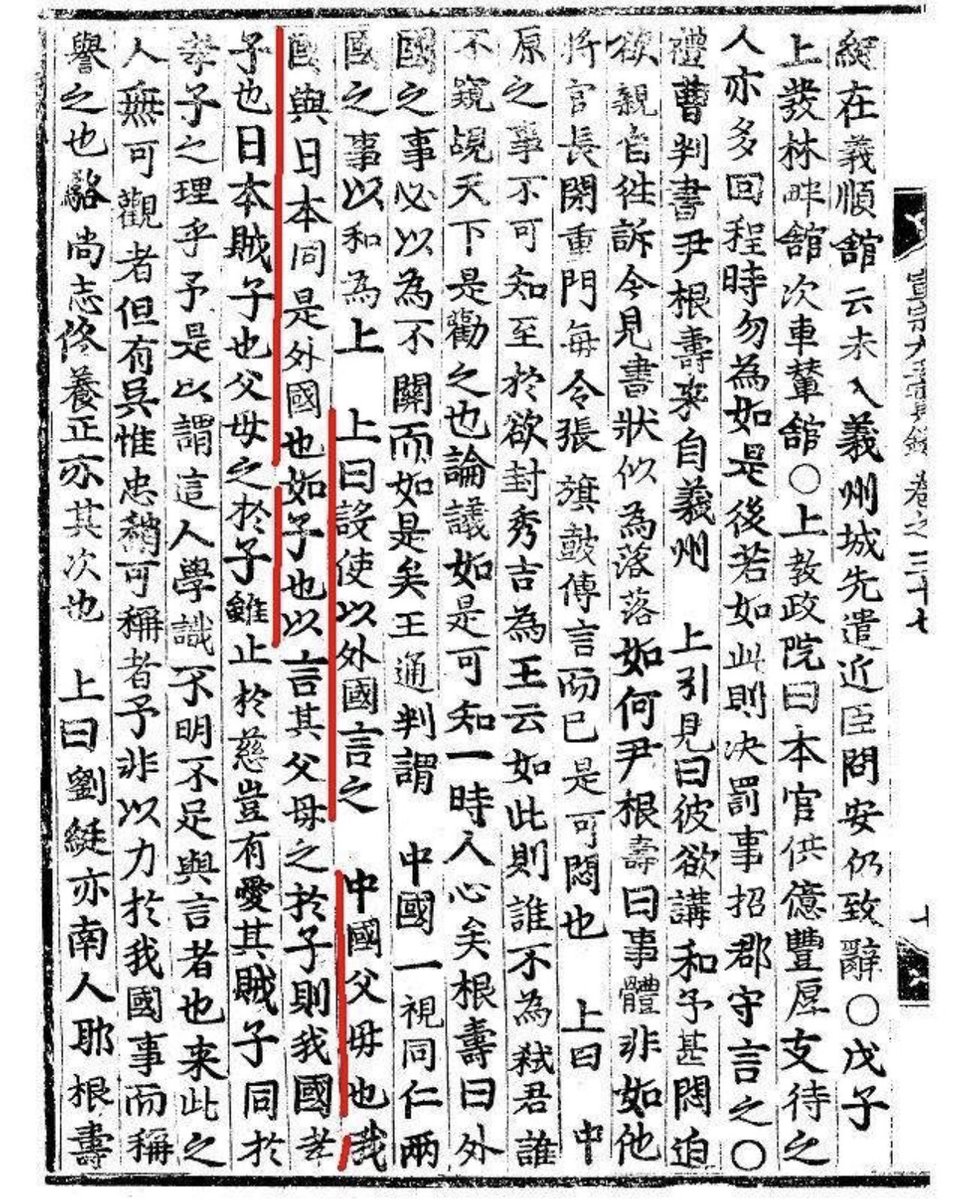 宣宗大王實錄卷之三十七
綎在義順館云未入義州城先遣近臣問安仍致辭○戊子
上發林畔館次車輦館○上敎政院曰本官供億豐厚支待之
人亦多回程時勿為如是後若如此則决罰事招郡守言之○
禮曹判書尹根壽来自義州　上引見曰彼欲講和予甚悶迫
欲親自往訴今見書狀似為落落如何尹根壽曰事體非如他
將官長閉重門每令張旗鼓傳言而已是可悶也　上曰　中
原之事不可知至於欲封秀吉為王云如此則誰不為弑君誰
不窺覘天下是勸之也論議如是可知一時人心矣根壽曰外
國之事必以為不關而如是矣王通判謂　中國一視同仁兩
國之事以和為上　上曰設使以外國言之　中國父母也我
國與日本同是外國也如子也以言其父母之於子則我國孝
子也日本賊子也父母之於子雖止於慈豈有愛其賊子同於
孝子之理乎予是以謂這人學識不明不足與言者也来此之
人無可觀者但有吳惟忠稍可稱者予非以力於我國事而稱
譽之也駱尚志佟養正亦其次也　上曰劉綎亦南人耶根壽